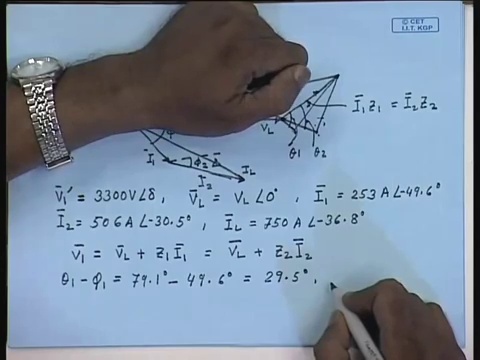 © CET
I.I.T. KGP
Ī₁Z₁ = Ī₂Z₂
V_L
θ₁ θ₂
Ī₁
Ī₂
I_L
V̄₁' = 3300V∠δ, V̄_L = V_L∠0°, Ī₁ = 253 A∠-49.6°
Ī₂ = 506 A∠-30.5°, Ī_L = 750 A∠-36.8°
V̄₁ = V̄_L + Z₁Ī₁ = V̄_L + Z₂Ī₂
θ₁ - φ₁ = 79.1° - 49.6° = 29.5°,